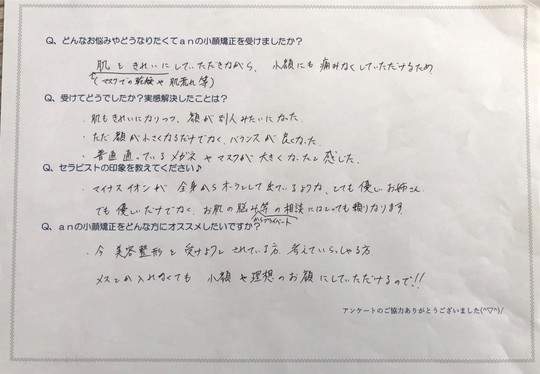 Q、どんなお悩みやどうなりたくてａｎの小顔矯正を受けましたか？
肌をきれいにしていただきながら、小顔にも痛みなくしていただけるため
(マスクでの乾燥や肌荒れ等)
Q、受けてどうでしたか？実感解決したことは？
・肌もきれいになりつつ、顔が別人みたいになった。
・ただ顔が小さくなるだけでなく、バランスが良くなった。
・普段使っているメガネやマスクが大きくなったと感じた。
Q、セラピストの印象を教えてください♪
・マイナスイオンが全身からオーラとして出ているような、とても優しいお姉さん
でも優しいだけでなく、お肌の悩み等の相談にはとっても頼りなります
からプライベート
Q、ａｎの小顔矯正をどんな方にオススメしたいですか？
・今美容整形を受けようとされている方、考えていらっしゃる方
メスとか入れなくても小顔や理想のお顔にしていただけるので!!
アンケートのご協力ありがとうございました(^▽^)/